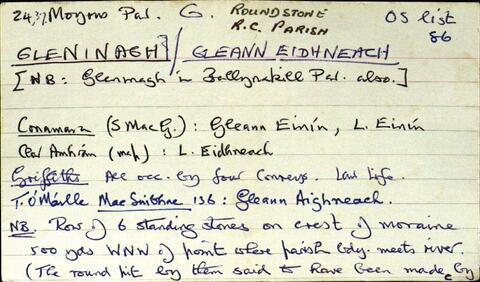 24,37 Moyrus Par. G. ROUNDSTONE R.C. PARISH OS list 86
GLENINAGH / GLEANN EIDHNEACH
[NB: Gleninagh in Ballynakill Par. also.]
Conamara (S MacG.): Gleann Einín, L. Einín
Ceol Amhrán (mcp): L. Eidhneach
Griffiths All occ. by four Conneeys. Law Life.
T. Ó Máille MacSuibhne 136: Gleann Aighneach.
NB. Row of 6 standing stones on crest of moraine
500 yds WNW of point where parish bdy. meets river.
(The round hut by them said to have been made by